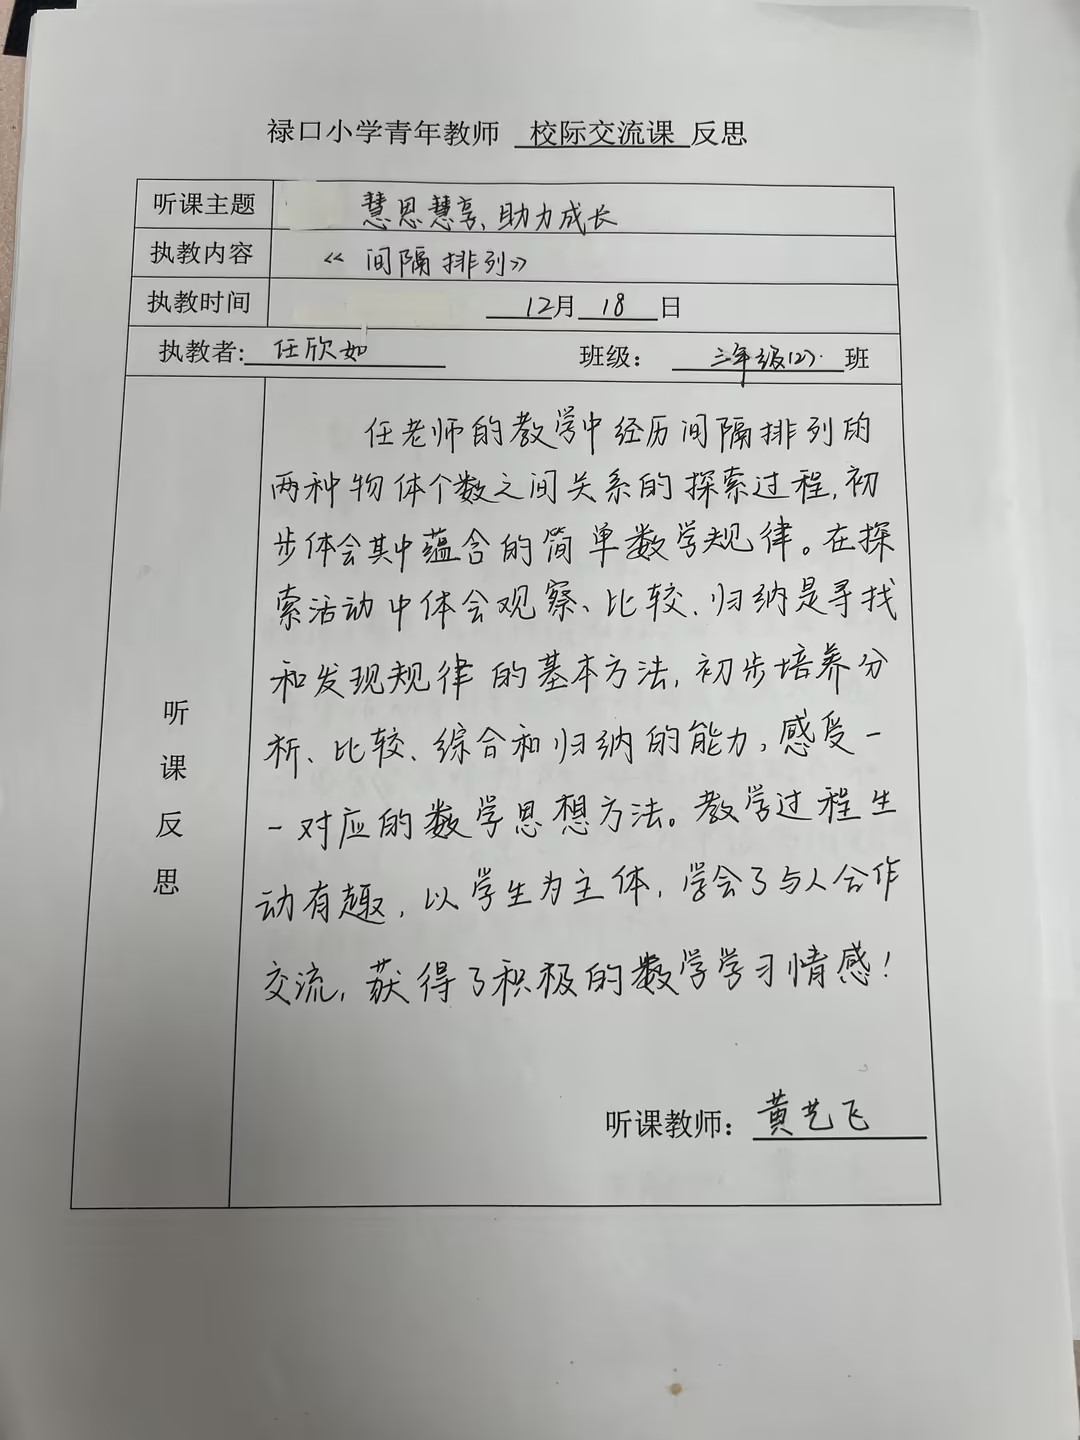 禄口小学青年教师 校际交流课 反思
听课主题 慧思慧享、助力成长
执教内容 《间隔排列》
执教时间 12月18日
执教者: 任欣如 班级： 三年级(2). 班
听课反思
任老师的教学中经历间隔排列的
两种物体个数之间关系的探索过程,初
步体会其中蕴含的简单数学规律。在探
索活动中体会观察、比较、归纳是寻找
和发现规律的基本方法,初步培养分
析、比较、综合和归纳的能力,感受一
一对应的数学思想方法。教学过程生
动有趣,以学生为主体,学会了与人合作
交流,获得了积极的数学学习情感!
听课教师： 黄艺飞